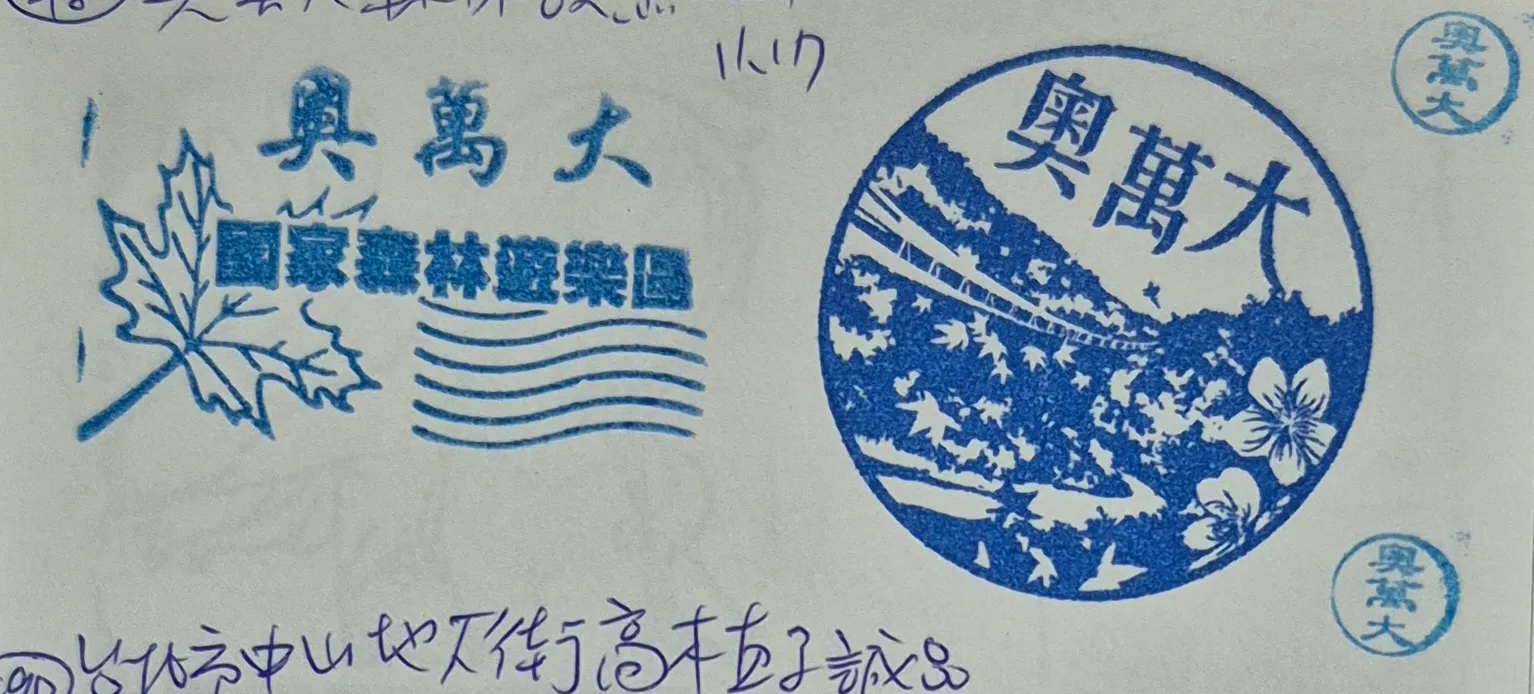 11.17
奧萬大
國家森林遊樂園
奧萬大
奧萬大
奧萬大
台北市中山地下街高木直子誠品